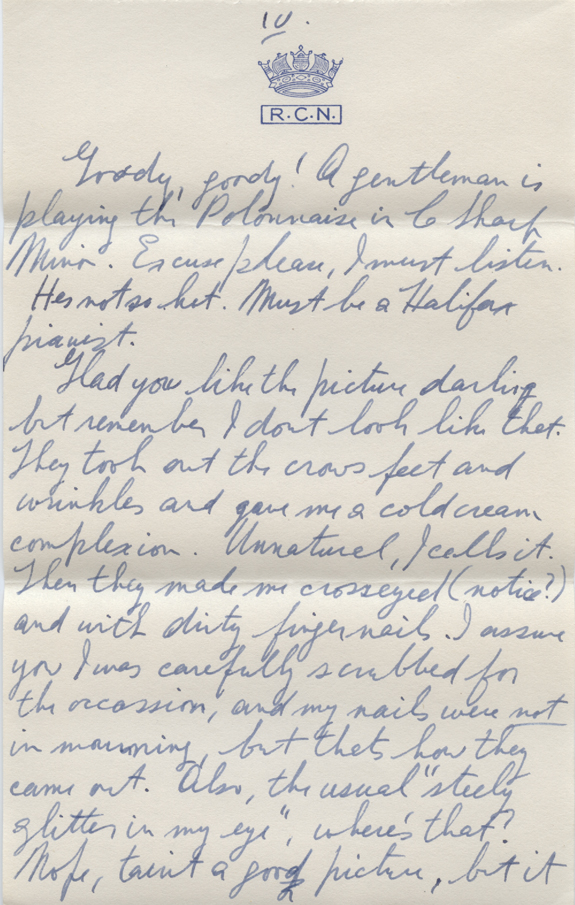 IV.
R.C.N.
Goody, goody! A gentleman is
playing the Polonnaise in C Sharp
Minor. Excuse please, I must listen.
Hes not so hot. Must be a Halifax
pianist.
Glad you like the picture darling
but remember I dont look like that.
They took out the crows feet and
wrinkles and gave me a coldcream
complexion. Unnaturel, I calls it.
Then they made me crosseyed (notice?)
and with dirty fingernails. I assure
you I was carefully scrubbed for
the occassion, and my nails were not
in mourning, but thats how they
came out. Also, the usual "steely
glitter in my eye", where's that?
Nope, taint a good picture, but it